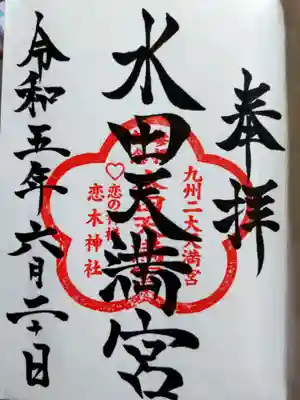 奉拝
水田天満宮
九州二大天満宮
♡恋の神様
恋木神社
令和五年六月二十日